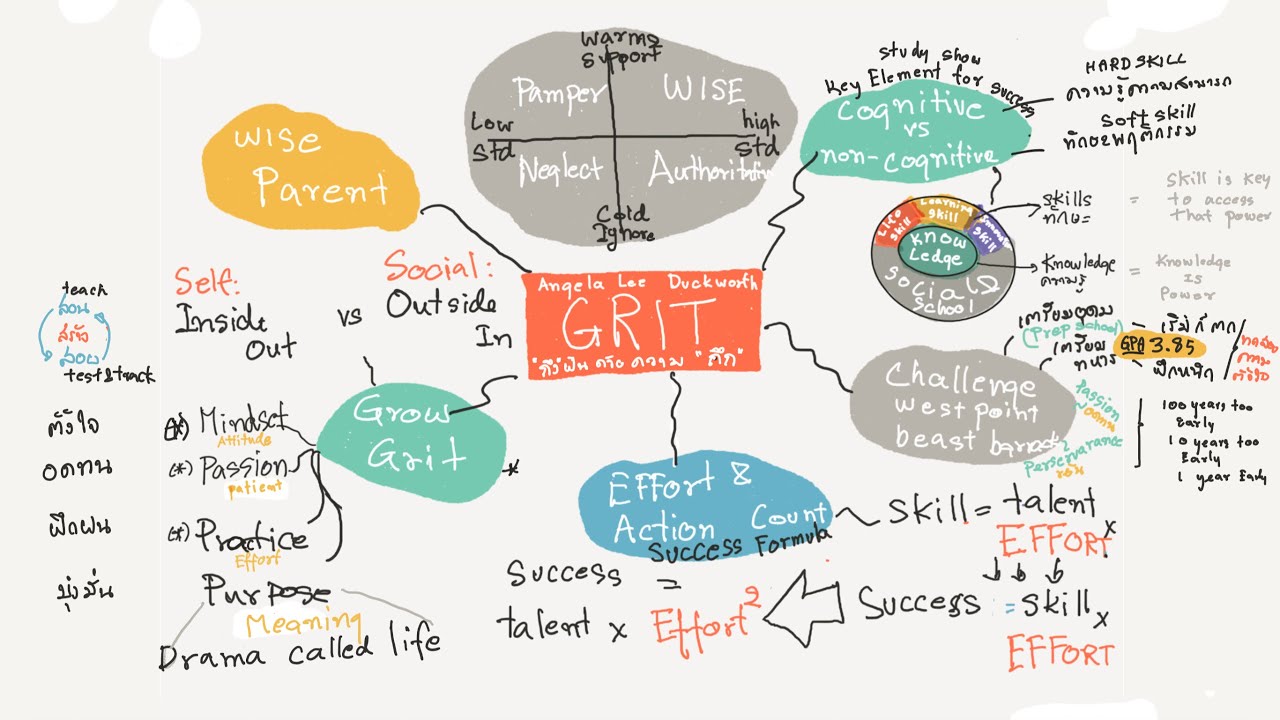 Angela Lee Duckworth
GRIT
wise
Parent
Warms
Support
Pamper
WISE
Low
Std
high
Std
Neglect
Authoritative
Cold
Ignore
study show
Key Element for success
Cognitive
vs
non-cognitive
HARD SKILL
ความรู้ความสามารถ
Soft skill
ทักษะพฤติกรรม
Life skill
Learning skill
skill
Know
Ledge
Social &
School
skills
ทักษะ
=
Skill is key
to access
that power
Knowledge
ความรู้
=
Knowledge
Is
Power
Challenge
west point
beast barracks
เตรียมอุดม
(Prep school)
GPA 3.85
เตรียม
ทหาร
ฝึกหนัก
Passion
อดทน
Perservarance
100 years too
Early
10 years too
Early
1 year Early
Effort &
Action Count
Success Formula
Skill = talent x
EFFORT
Success = skill x
EFFORT
Success =
talent x Effort2
Self:
Inside
Out
vs
Social:
Outside
In
Grow
Grit
teach
สอน
สร้าง
สอบ
test & track
ตั้งใจ
(*) Mindset
Attitude
อดทน
(*) Passion
patient
ฝึกฝน
(*) Practice
Effort
มุ่งมั่น
Purpose
Meaning
Drama called life